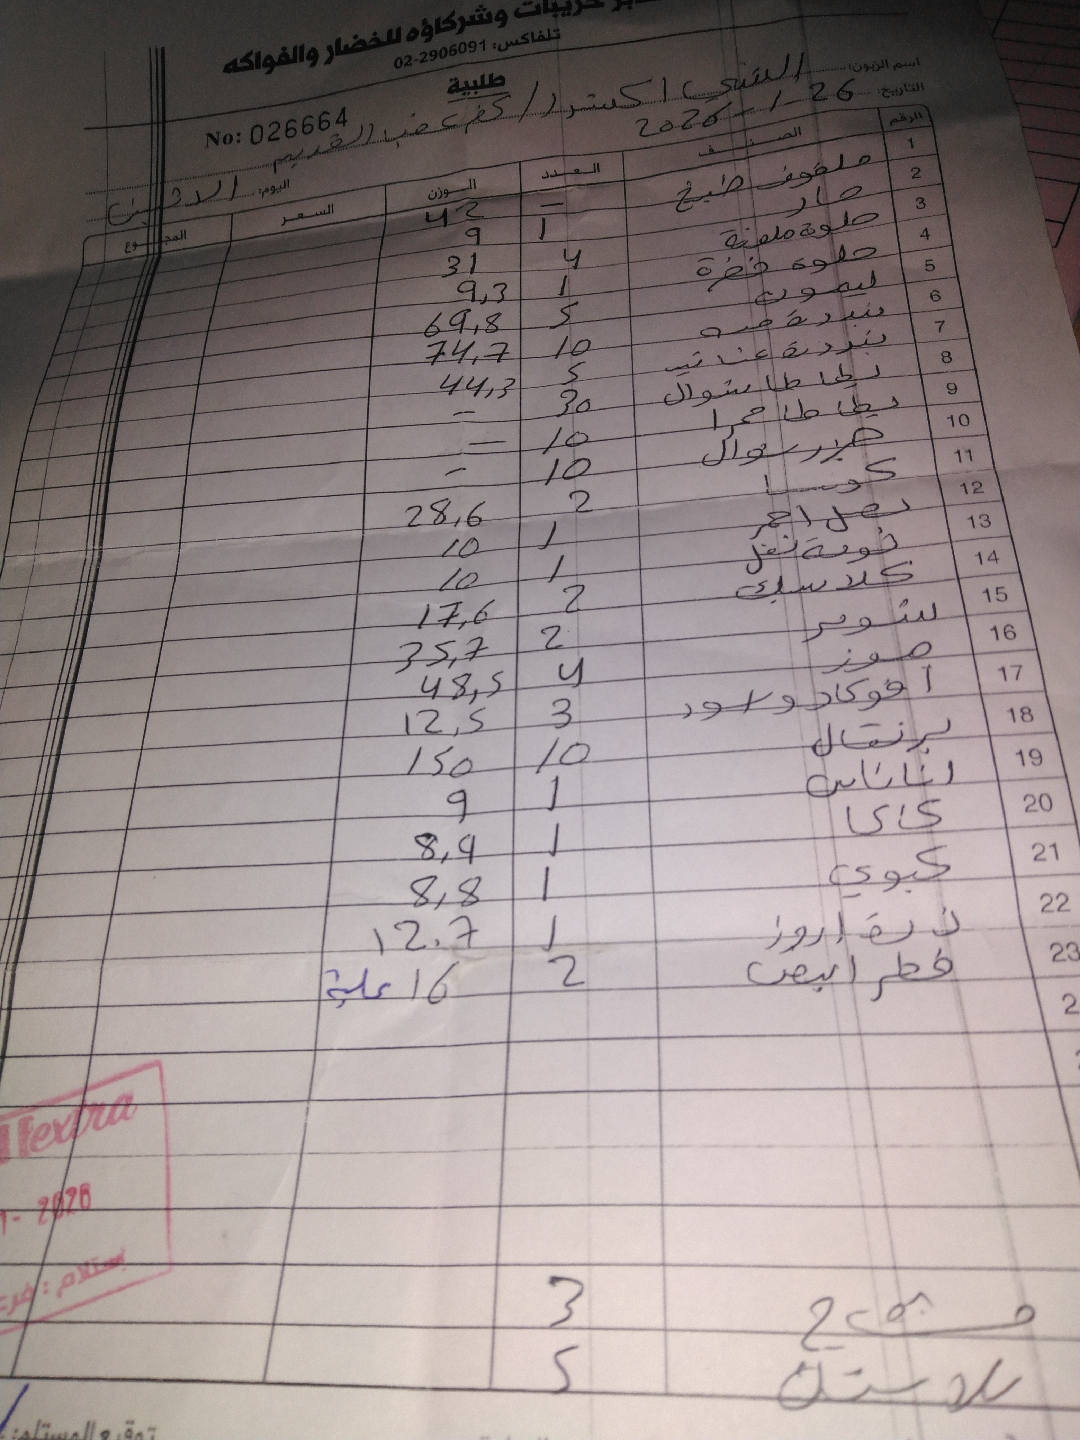 وشركاؤه للخضار والفواكه
تلفاكس: 02-2906091
طلبية
No: 026664
اسم الزبون: اكسترا / كفر عقب القديم
التاريخ: 26-1-2026
اليوم: الاثنين
الرقم الصنف العدد الوزن السعر المجموع
1 ملفوف طبيخ - 42
2 1 9
3 حلوة ملونة 4 31
4 حلوة خضرة 1 9,3
5 ليمون 5 69,8
6 بندورة 10 74,7
7 بندورة عناقيد 5 44,3
8 بطاطا شوال 30 -
9 بطاطا حمرا 10 -
10 جزر شوال 10 -
11 كوسا 2 28,6
12 بصل احمر 1 10
13 ثومة نفل 1 10
14 كلاسيك 2 17,6
15 2 35,7
16 موز 4 48,5
17 أفوكادو 3 12,5
18 برتقال 10 150
19 اناناس 1 9
20 كاكا 1 8,9
21 كيوي 1 8,8
22 1 12.7
23 فطر ابيض 2 16 علبة
3
بلاستك 5
extra
2026
توقيع المستلم: